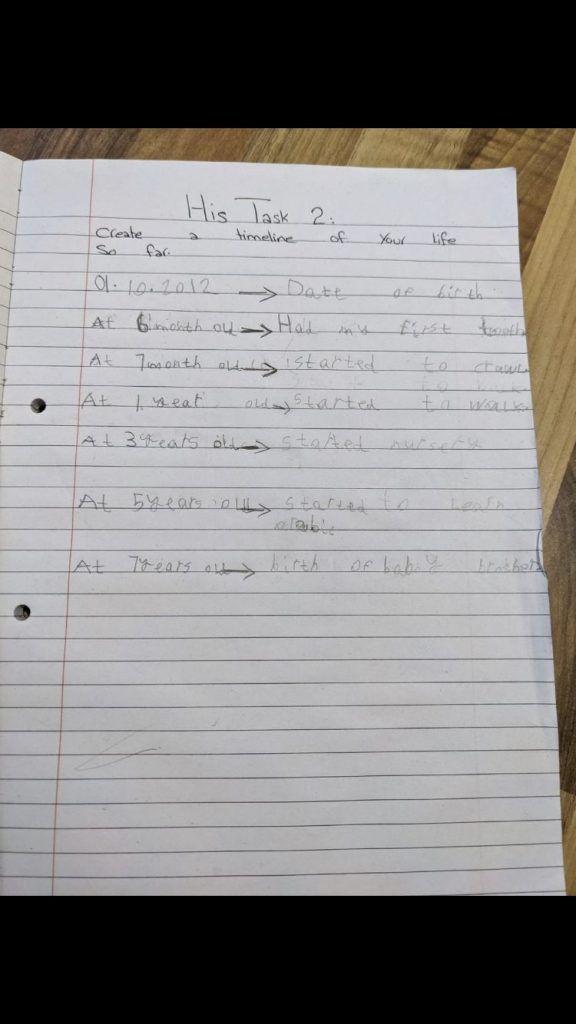 His Task 2:
Create a timeline of your life
So far.
01.10.2012 → Date of birth
At 6 month old → Had my first tooth
At 7month old → started to crawl
At 1 year old → started to walk
At 3years old → started nursery
At 5years old → started to learn
arabic
At 7years old → birth of baby brother